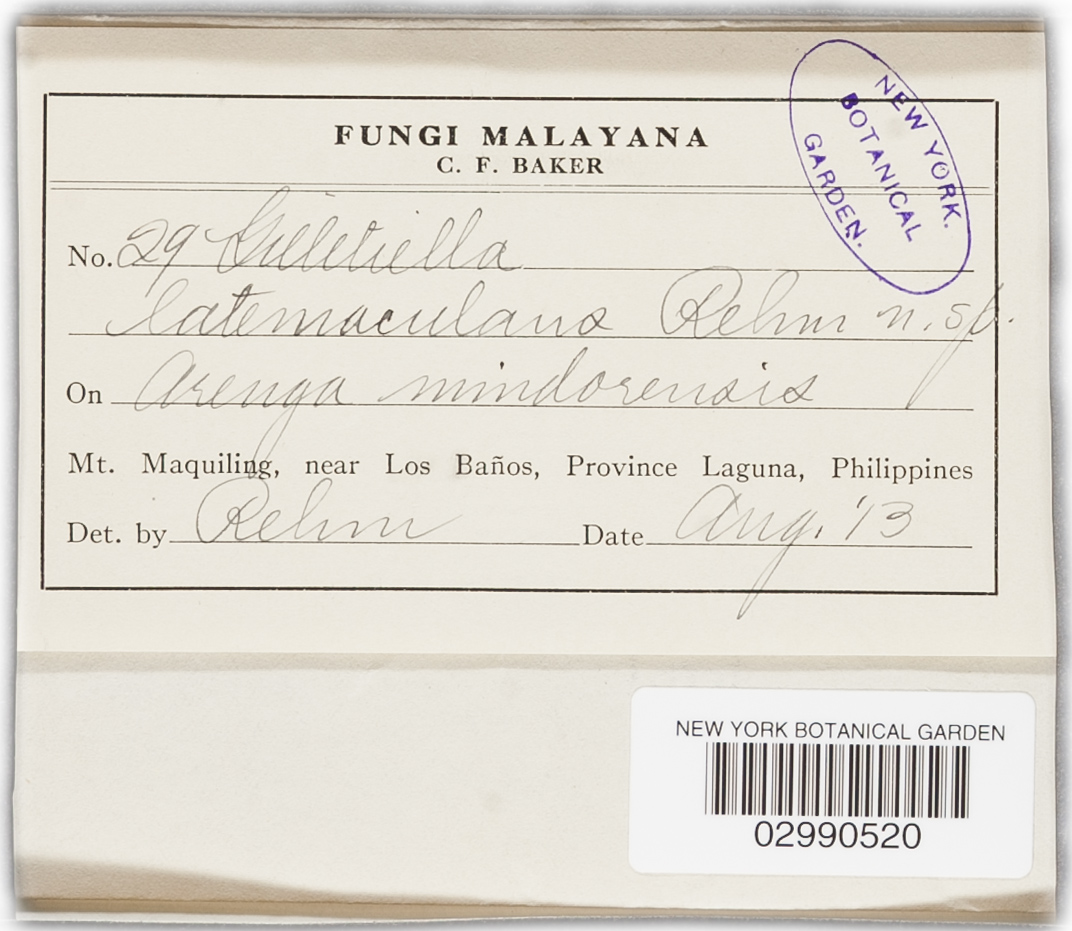 FUNGI MALAYANA
C. F. BAKER
NEW YORK.
BOTANICAL
GARDEN.
No. 29 Gilletiella
latemaculans Rehm n. sp.
On Arenga mindorensis
Mt. Maquiling, near Los Baños, Province Laguna, Philippines
Det. by Rehm Date Aug. '13
NEW YORK BOTANICAL GARDEN
02990520